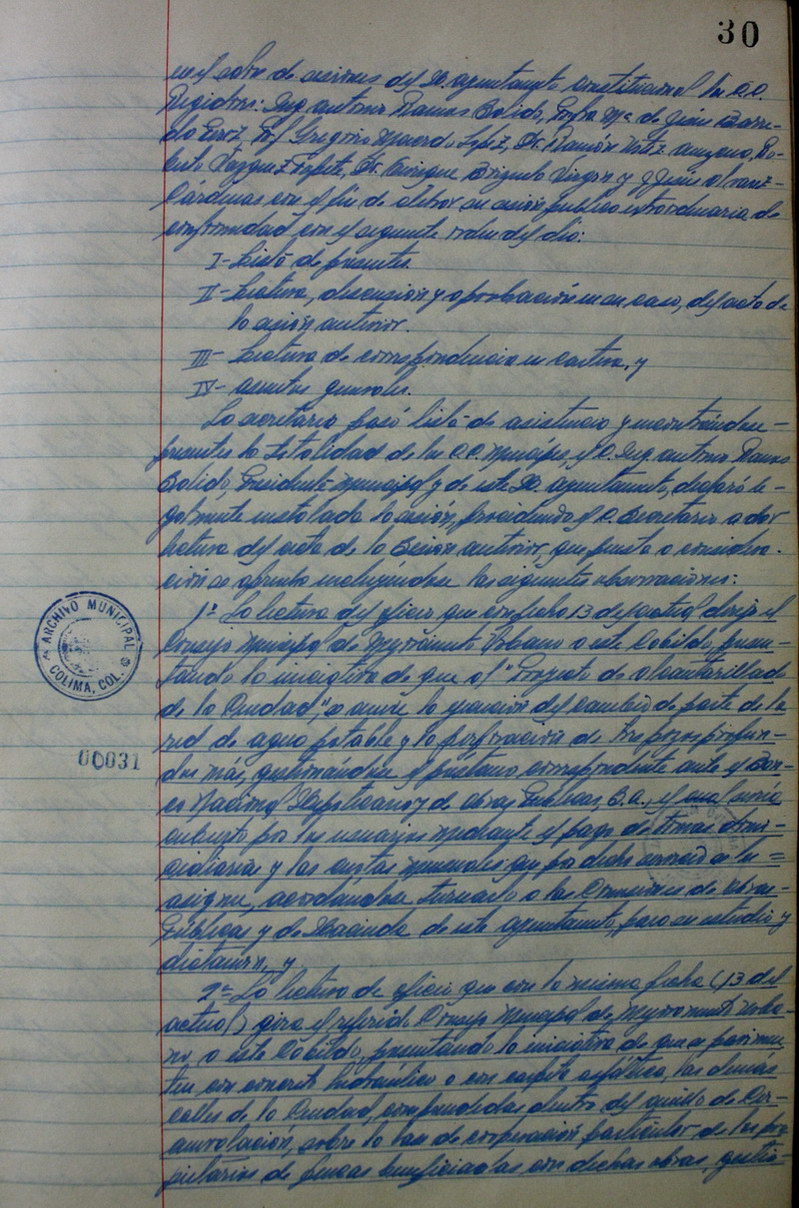 30
en el salón de sesiones del H. Ayuntamiento Constitucional los C.C.
Regidores: Ing. Antonio Ramos Salido, Profra. Ma. de Jesús Barre-
da Pérez, Prof. Gregorio Macedo López, Dr. Ramón Ortiz Anzano, Ro-
berto Vázquez Dr. Enrique Brizuela Virgen y J. Jesús
Cárdenas con el fin de celebrar su sesión pública extraordinaria de
conformidad con el siguiente orden del día:
I- Lista de presentes.
II- Lectura, discusión y aprobación en su caso, del acta de
la sesión anterior.
III- Lectura de correspondencia en cartera, y
IV- Asuntos generales.
La secretaría pasó lista de asistencia y encontrándose
presentes la totalidad de los C.C. Munícipes, el C. Ing. Antonio Ramos
Salido, Presidente Municipal y de este H. Ayuntamiento, declaró le-
galmente instalada la sesión, procediendo el C. Secretario a dar
lectura del acta de la sesión anterior, que puesta a considera-
ción se aprueba incluyéndose las siguientes observaciones:
1ª- La lectura del oficio que con fecha 13 del actual dirije el
Consejo Municipal de Mejoramiento Urbano a este Cabildo, presen-
tando la iniciativa de que al "Proyecto de alcantarillado
de la Ciudad", se anexe la gestión del cambio de parte de la
red de agua potable y la perforación de tres pozos profun-
dos más, gestionándose el préstamo correspondiente ante el Ban-
co Nacional Hipotecario y de Obras Públicas, S.A., el cual sería
cubierto por los usuarios mediante el pago de tomas domi-
ciliarias y las cuotas mensuales que por dicho servicio se les
asigne, acordándose turnarlo a las Comisiones de Obras
Públicas y de Hacienda de este Ayuntamiento, para su estudio y
dictamen, y
2ª- La lectura de oficio que con la misma fecha (13 del
actual) gira el referido Consejo Municipal de Mejoramiento Urba-
no a este Cabildo, presentando la iniciativa de que se pavimen-
ten con concreto hidráulico o con carpeta asfáltica, las demás
calles de la Ciudad, comprendidas dentro del anillo de Cir-
cunvalación, sobre la base de cooperación particular de los pro-
pietarios de fincas beneficiadas con dichas obras, gestio-
ARCHIVO MUNICIPAL
COLIMA, COL.
00031